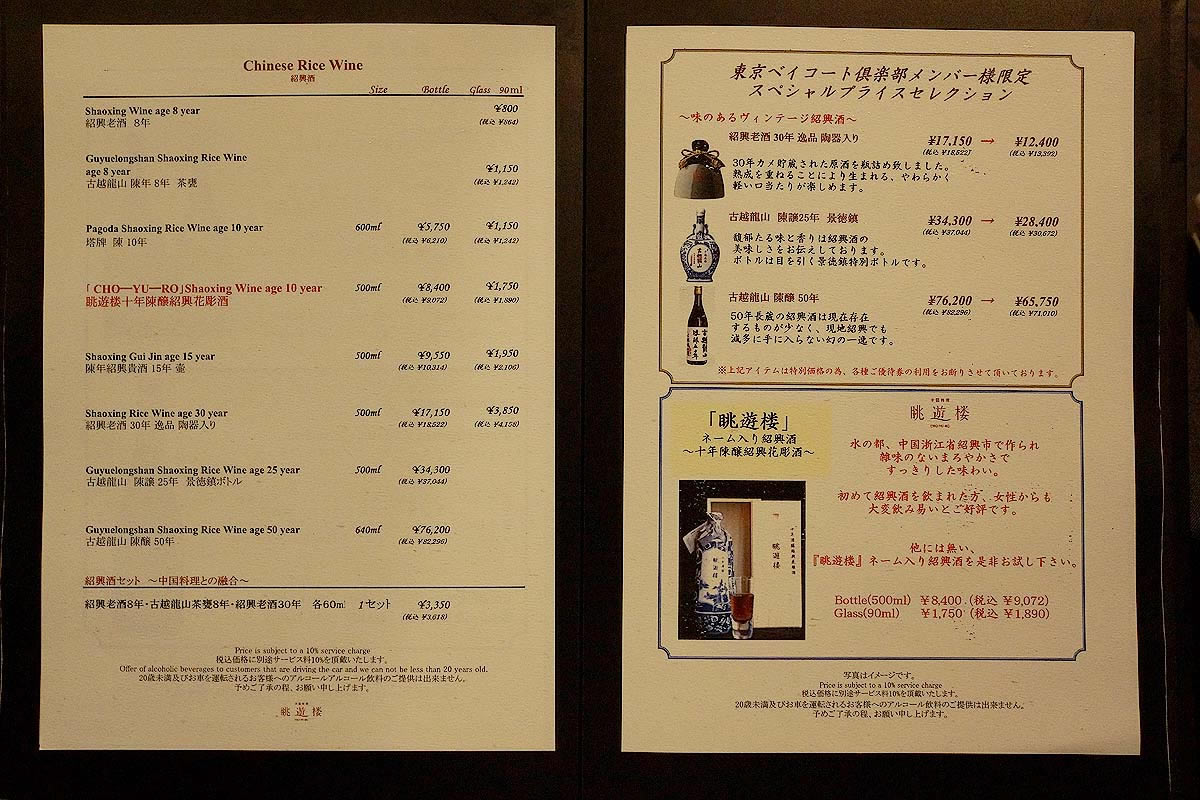 Chinese Rice Wine
紹興酒
Size Bottle Glass 90ml
Shaoxing Wine age 8 year ¥800
紹興老酒 8年 (税込 ¥864)
Guyuelongshan Shaoxing Rice Wine
age 8 year ¥1,150
古越龍山 陳年 8年 茶甕 (税込 ¥1,242)
Pagoda Shaoxing Rice Wine age 10 year 600ml ¥5,750 ¥1,150
塔牌 陳 10年 (税込 ¥6,210) (税込 ¥1,242)
「CHO―YU―RO」Shaoxing Wine age 10 year 500ml ¥8,400 ¥1,750
眺遊楼十年陳醸紹興花彫酒 (税込 ¥9,072) (税込 ¥1,890)
Shaoxing Gui Jin age 15 year 500ml ¥9,550 ¥1,950
陳年紹興貴酒 15年 壷 (税込 ¥10,314) (税込 ¥2,106)
Shaoxing Rice Wine age 30 year 500ml ¥17,150 ¥3,850
紹興老酒 30年 逸品 陶器入り (税込 ¥18,522) (税込 ¥4,158)
Guyuelongshan Shaoxing Rice Wine age 25 year 500ml ¥34,300
古越龍山 陳譲 25年 景徳鎮ボトル (税込 ¥37,044)
Guyuelongshan Shaoxing Rice Wine age 50 year 640ml ¥76,200
古越龍山 陳醸 50年 (税込 ¥82,296)
紹興酒セット ～中国料理との融合～
紹興老酒8年・古越龍山茶甕8年・紹興老酒30年 各60ml 1セット ¥3,350
(税込 ¥3,618)
Price is subject to a 10% service charge
税込価格に別途サービス料10%を頂戴いたします。
Offer of alcoholic beverages to customers that are driving the car and we can not be less than 20 years old.
20歳未満及びお車を運転されるお客様へのアルコールアルコール飲料のご提供は出来ません。
予めご了承の程、お願い申し上げます。
眺遊楼
東京ベイコート倶楽部メンバー様限定
スペシャルプライスセレクション
～味のあるヴィンテージ紹興酒～
紹興老酒 30年 逸品 陶器入り ¥17,150 → ¥12,400
(税込 ¥18,522) (税込 ¥13,392)
30年カメ貯蔵された原酒を瓶詰め致しました。
熟成を重ねることにより生まれる、やわらかく
軽い口当たりが楽しめます。
古越龍山 陳譲25年 景徳鎮 ¥34,300 → ¥28,400
(税込 ¥37,044) (税込 ¥30,672)
馥郁たる味と香りは紹興酒の
美味しさをお伝えしております。
ボトルは目を引く景徳鎮特別ボトルです。
古越龍山 陳醸 50年 ¥76,200 → ¥65,750
(税込 ¥82,296) (税込 ¥71,010)
50年長蔵の紹興酒は現在存在
するものが少なく、現地紹興でも
滅多に手に入らない幻の一逸です。
※上記アイテムは特別価格の為、各種ご優待券の利用をお断りさせて頂いております。
「眺遊楼」
ネーム入り紹興酒
～十年陳醸紹興花彫酒～
眺遊楼
水の都、中国浙江省紹興市で作られ
雑味のないまろやかさで
すっきりした味わい。
初めて紹興酒を飲まれた方、女性からも
大変飲み易いとご好評です。
他には無い、
『眺遊楼』ネーム入り紹興酒を是非お試し下さい。
Bottle(500ml) ¥8,400 (税込 ¥9,072)
Glass(90ml) ¥1,750 (税込 ¥1,890)
写真はイメージです。
Price is subject to a 10% service charge
税込価格に別途サービス料10%を頂戴いたします。
20歳未満及びお車を運転されるお客様へのアルコール飲料のご提供は出来ません。
予めご了承の程、お願い申し上げます。